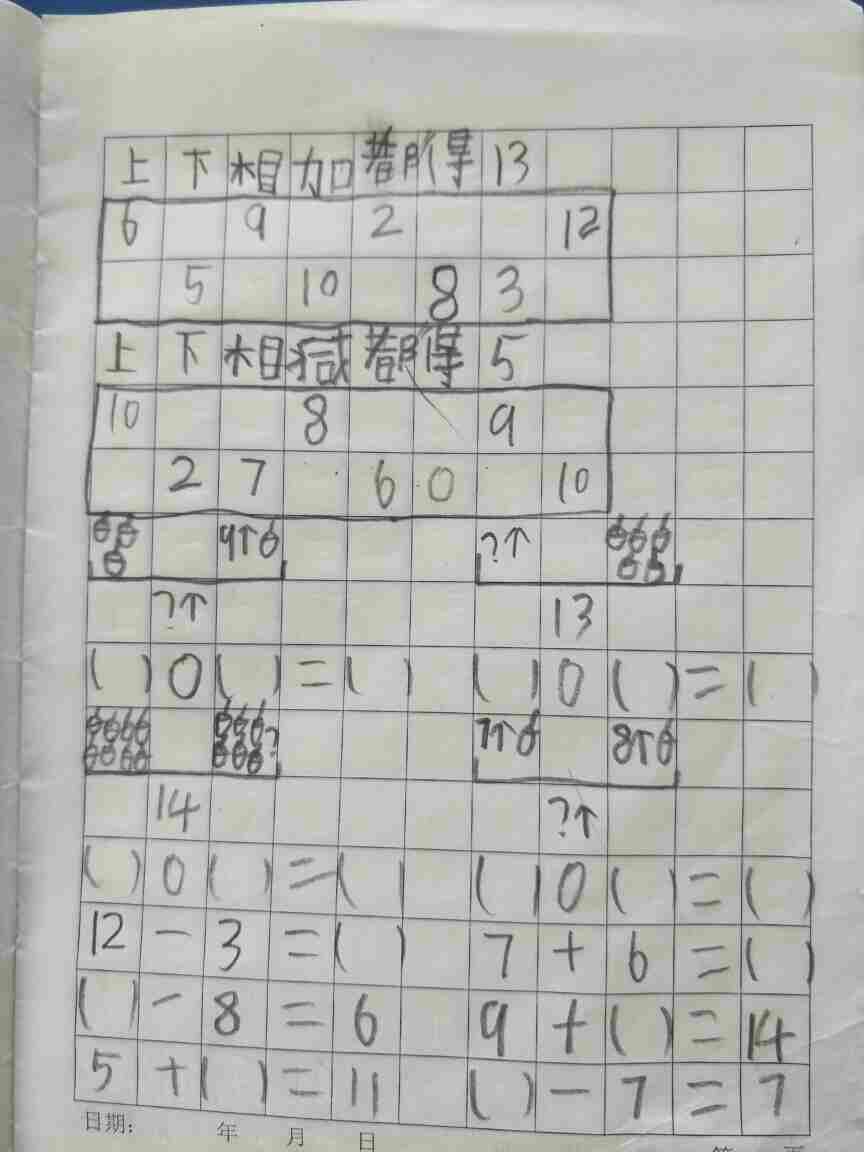 上下相加都得13
6 9 2 12
5 10 8 3
上下相减都得5
10 8 9
2 7 6 0 10
9个 ?个
?个 13
( )○( )=( ) ( )○( )=( )
? 7个 8个
14 ?个
( )○( )=( ) ( )○( )=( )
12-3=( ) 7+6=( )
( )-8=6 9+( )=14
5+( )=11 ( )-7=7
日期: 年 月 日